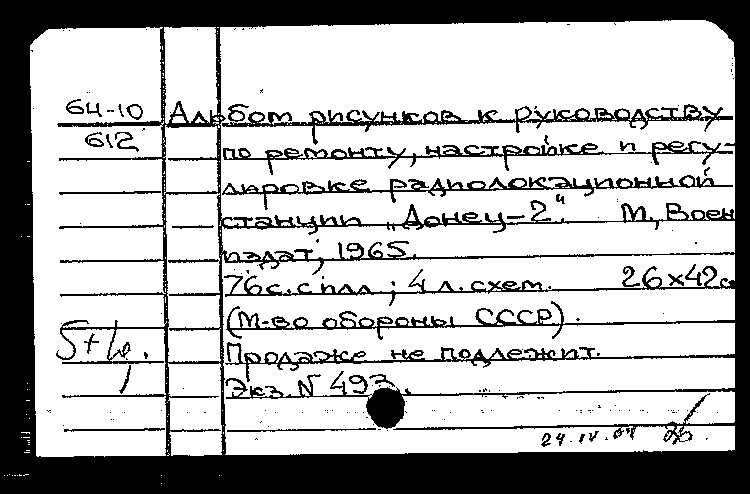 64-10 Альбом рисунков к руководству
612 по ремонту, настройке и регу-
лировке радиолокационной
станции „Донец-2". М., Воен
издат, 1965.
76 с. с илл.; 4 л. схем. 26x42с
(М-во обороны СССР).
Продаже не подлежит.
Экз. N 493.
24.IV.64